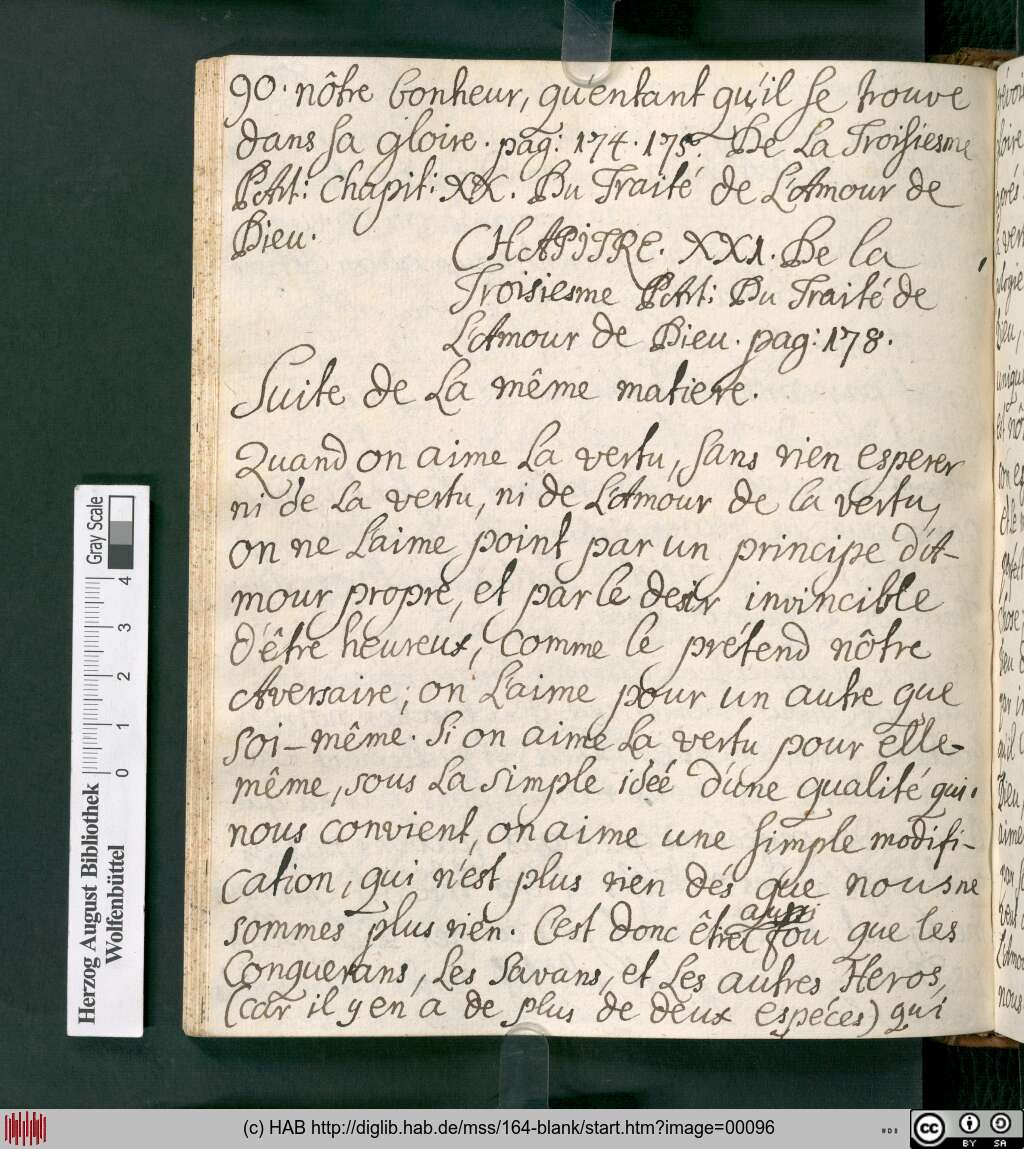 90. nôtre bonheur, qu'entant qu'il se trouve
dans sa gloire. pag: 174. 175. De La Troisiesme
PArt: Chapit: XX. Du Traité de L'Amour de
Dieu.
CHAPITRE. XXI. De la
Troisiesme PArt: Du Traité de
L'Amour de Dieu. pag: 178.
Suite de La même matiere.
Quand on aime La vertu, sans rien esperer
ni de La vertu, ni de L'Amour de la vertu,
on ne L'aime point par un principe d'A-
mour propre, et par le desir invincible
d'être heureux, comme le prétend nôtre
Aversaire; on L'aime pour un autre que
soi-même. Si on aime La vertu pour elle-
même, sous La simple idéé d'une qualité qui
nous convient, on aime une simple modifi-
cation, qui n'est plus rien dés que nous ne
sommes plus rien. C'est donc être fou que les
aussi
Conquerans, Les Savans, et Les autres Heros,
(car il y en a de plus de deux espéces) qui
Herzog August Bibliothek
Wolfenbüttel
0 1 2 3 4
Gray Scale
(c) HAB http://diglib.hab.de/mss/164-blank/start.htm?image=00096
cc BY SA